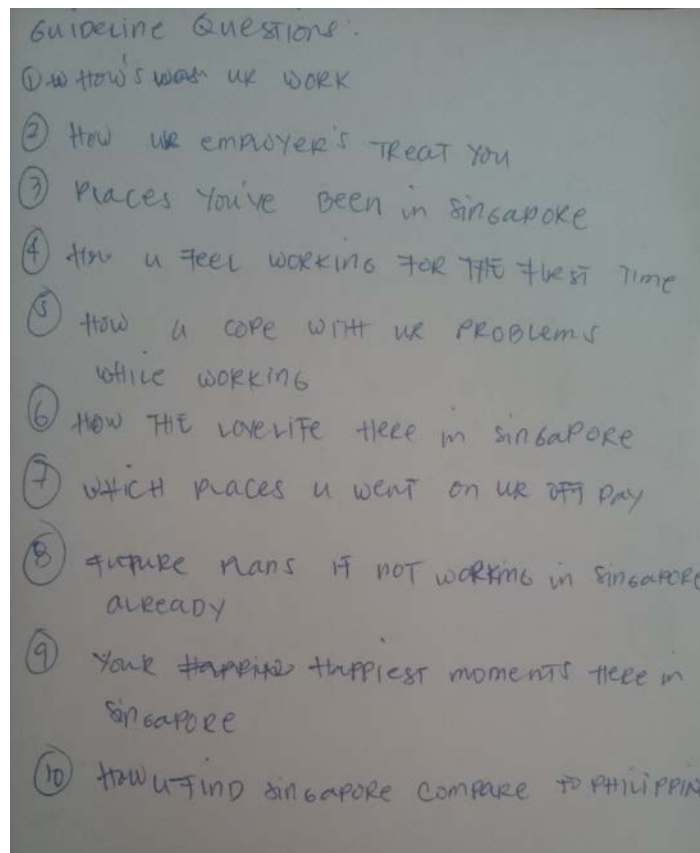 GUIDELINE QUESTIONS:
① How's ur WORK
② How UR EMPLOYER'S TREAT YOU
③ PLACES YOU'VE BEEN in SINGAPORE
④ How u FEEL WORKING FOR THE TIME
⑤ HOW u COPE WITH UR PROBLEMS
WHILE WORKING
⑥ HOW THE LOVELIFE HERE in SINGAPORE
⑦ WHICH PLACES u WENT ON UR OFF DAY
⑧ FUTURE PLANS IF NOT WORKING in SINGAPORE
ALREADY
⑨ YOUR HAPPIEST MOMENTS HERE in
SINGAPORE
⑩ HOW u FIND SINGAPORE COMPARE TO PHILIPPIN